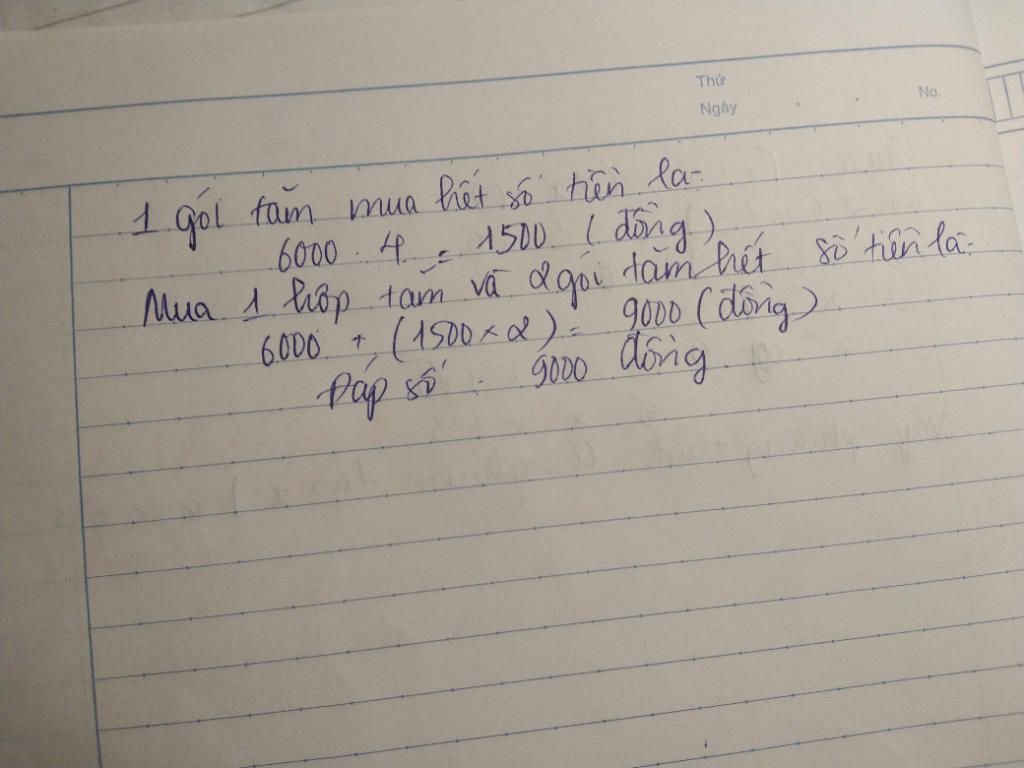 Thứ
Ngày . . No.
1 gói tăm mua hết số tiền là:
6000 : 4 = 1500 (đồng)
Mua 1 hộp tăm và 2 gói tăm hết số tiền là:
6000 + (1500 × 2) = 9000 (đồng)
Đáp số : 9000 đồng